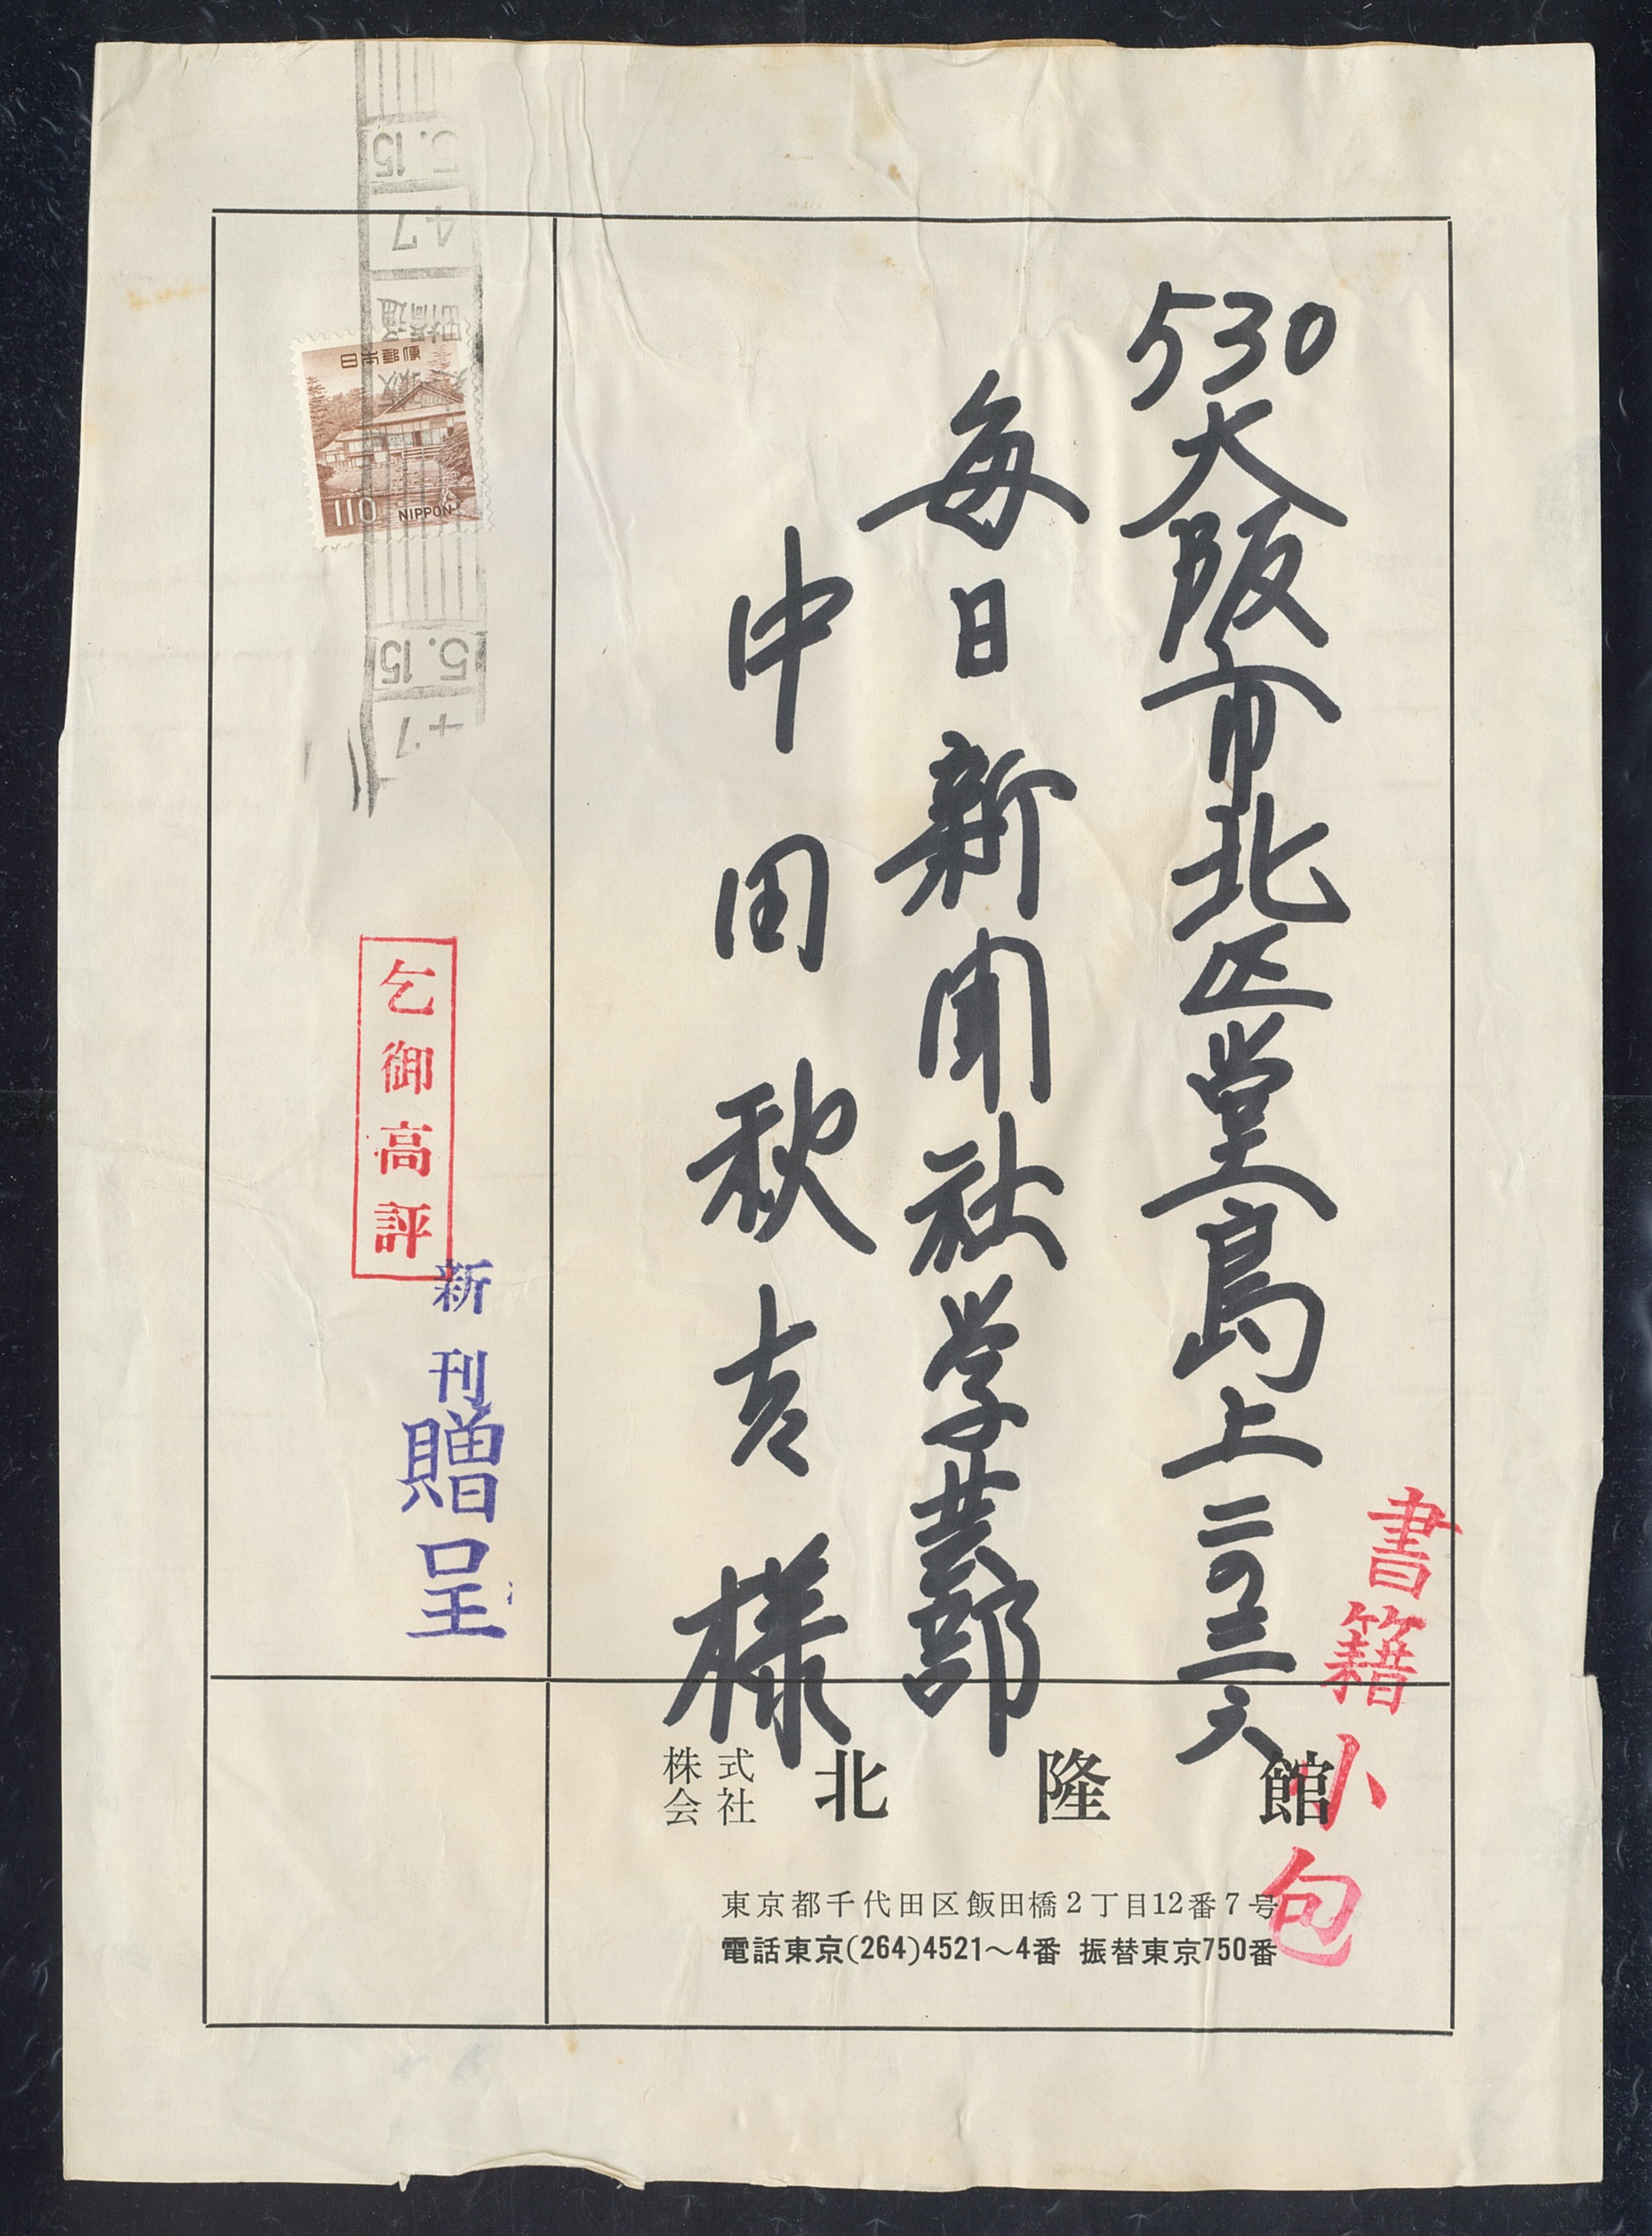 530
大阪市北区堂島上二の三六
毎日新聞社学芸部
中田秋夫様
書籍小包
乞御高評
新刊
贈呈
日本郵便
110 NIPPON
5.15
47
5.15
47
株式会社 北隆館
東京都千代田区飯田橋2丁目12番7号
電話東京(264)4521〜4番 振替東京750番